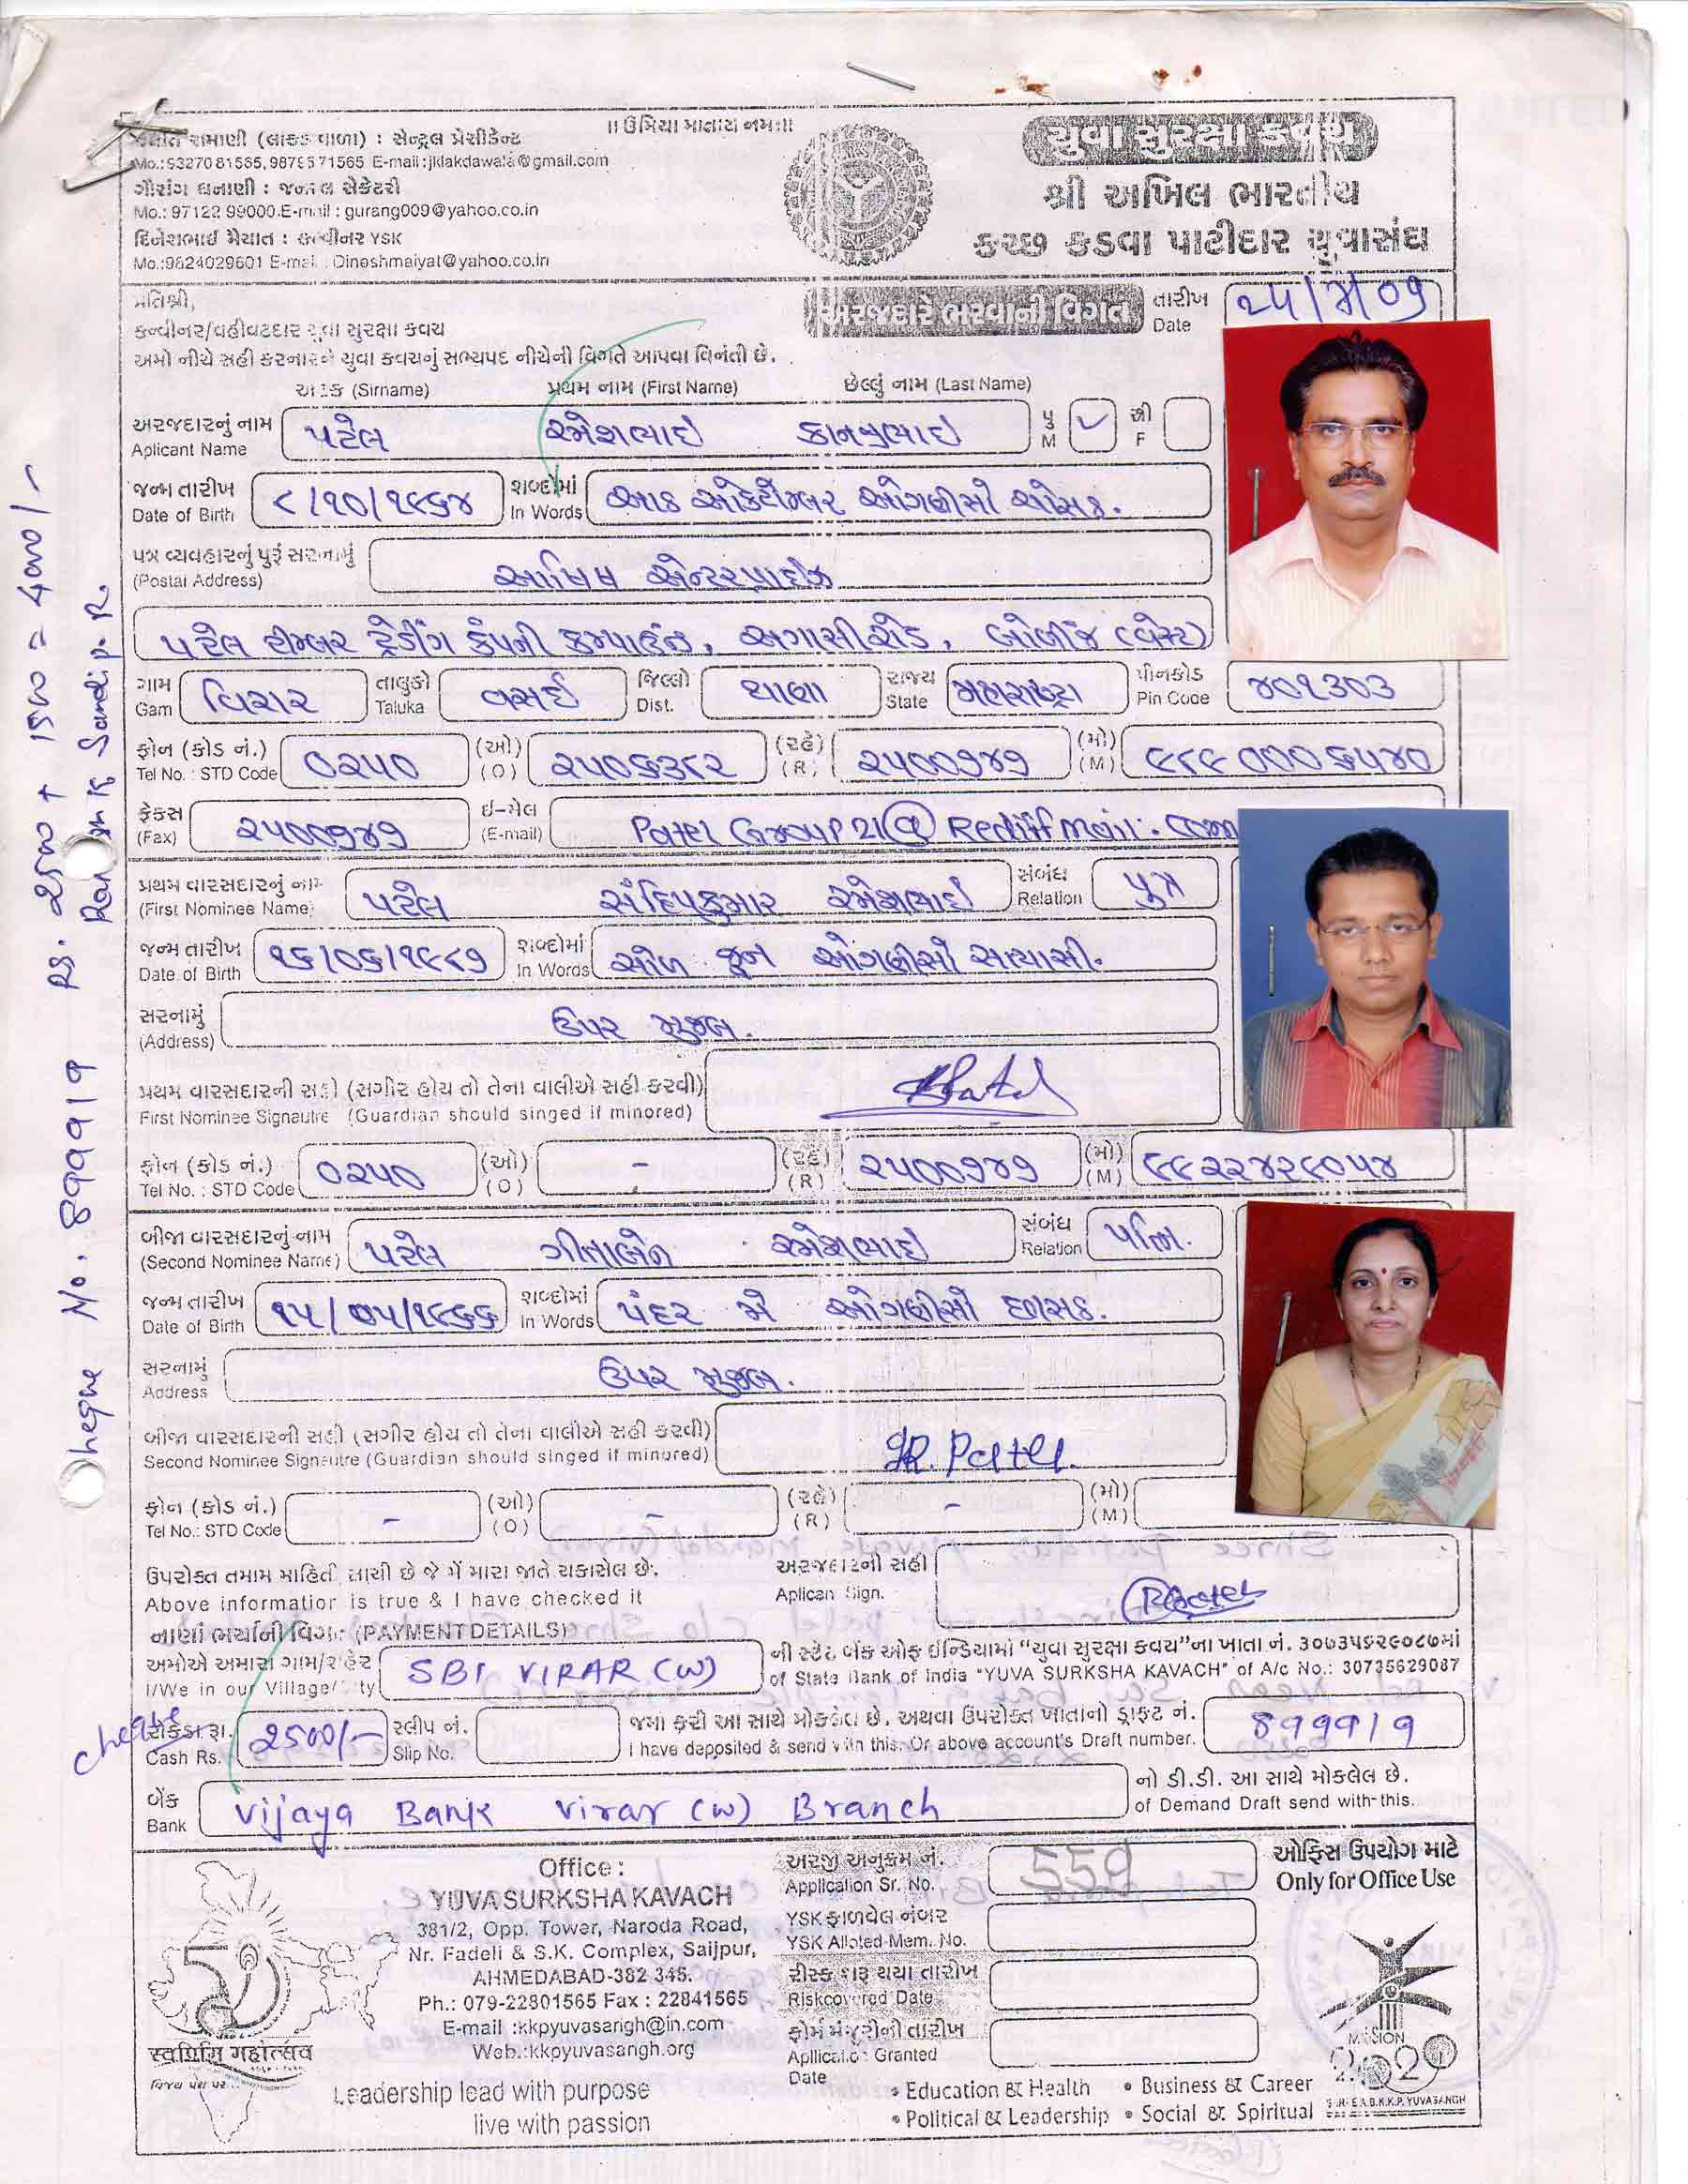 ॥ ઉમિયા માતાય નમઃ॥
રામાણી (લાકડાવાળા) : સેન્ટ્રલ પ્રેસીડેન્ટ
E-mail:jklakdawala@gmail.com
ગૌરાંગ ધનાણી : જનરલ સેક્રેટરી
Mo.: 97122 99000.E-mail : gurang009@yahoo.co.in
દિનેશભાઈ મૈયાત : કન્વીનર YSK
Mo.:9824029601 E-mail : Dineshmaiyat@yahoo.co.in
યુવા સુરક્ષા કવચ
શ્રી અખિલ ભારતીય
કચ્છ કડવા પાટીદાર યુવાસંઘ
પ્રતિશ્રી,
કન્વીનર/વહીવટદાર યુવા સુરક્ષા કવચ
અમો નીચે સહી કરનારને યુવા કવચનું સભ્યપદ નીચેની વિગતે આપવા વિનંતી છે.
અરજદારે ભરવાની વિગત
તારીખ Date
અટક (Sirname) પ્રથમ નામ (First Name) છેલ્લું નામ (Last Name)
અરજદારનું નામ Aplicant Name પટેલ રમેશભાઇ કાનજીભાઇ પુ M ✓ સ્ત્રી F
જન્મ તારીખ Date of Birth ૮/૧૦/૧૯૬૪ શબ્દોમાં In Words આઠ ઓકટોમ્બર ઓગણીસો ચોસઠ.
પત્ર વ્યવહારનું પુરૂં સરનામું (Postal Address) આશિષ એન્ટરપ્રાઇઝ
પટેલ ટીમ્બર ટ્રેડીંગ કંપની કમ્પાઉન્ડ, અગાસી રોડ, બોળીંજ (વેસ્ટ)
ગામ Gam વિરાર તાલુકો Taluka વસઈ જિલ્લો Dist. થાણા રાજ્ય State મહારાષ્ટ્રા પીનકોડ Pin Code ૪૦૧૩૦૩
ફોન (કોડ નં.) Tel No. : STD Code ૦૨૫૦ (ઓ) (O) ૨૫૦૬૩૮૨ (રહે) (R) ૨૫૦૦૭૪૭ (મો) (M) ૯૮૯૦૦૦૬૫૪૦
ફેક્સ (Fax) ૨૫૦૦૭૪૭ ઈ-મેલ (E-mail) Patel Group21@Rediffmail.com
પ્રથમ વારસદારનું નામ (First Nominee Name) પટેલ સંદિપકુમાર રમેશભાઇ સંબંધ Relation પુત્ર
જન્મ તારીખ Date of Birth ૧૬/૦૬/૧૯૮૭ શબ્દોમાં In Words સોળ જૂન ઓગણીસો સત્યાસી.
સરનામું (Address) ઉપર મુજબ.
પ્રથમ વારસદારની સહી (સગીર હોય તો તેના વાલીએ સહી કરવી)
First Nominee Signautre (Guardian should singed if minored)
ફોન (કોડ નં.) Tel No. : STD Code ૦૨૫૦ (ઓ) (O) - (રહે) (R) ૨૫૦૦૭૪૭ (મો) (M) ૯૯૨૨૪૨૯૦૫૪
બીજા વારસદારનું નામ (Second Nominee Name) પટેલ ગીતાબેન રમેશભાઇ સંબંધ Relation પત્નિ.
જન્મ તારીખ Date of Birth ૧૫/૦૫/૧૯૬૬ શબ્દોમાં In Words પંદર મે ઓગણીસો છાસઠ.
સરનામું Address ઉપર મુજબ.
બીજા વારસદારની સહી (સગીર હોય તો તેના વાલીએ સહી કરવી)
Second Nominee Signautre (Guardian should singed if minored) GR. Patel.
ફોન (કોડ નં.) Tel No.: STD Code - (ઓ) (O) - (રહે) (R) - (મો) (M)
ઉપરોક્ત તમામ માહિતી સાચી છે જે મેં મારા જાતે ચકાસેલ છે.
Above information is true & I have checked it
અરજદારની સહી Aplican Sign. RPatel
નાણાં ભર્યાની વિગત (PAYMENT DETAILS)
અમોએ અમારા ગામ/શહેર I/We in our Village/City SBI VIRAR (W)
ની સ્ટેટ બેંક ઓફ ઈન્ડિયામાં "યુવા સુરક્ષા કવચ"ના ખાતા નં. ૩૦૭૩૫૬૨૯૦૮૭માં
of State Bank of India "YUVA SURKSHA KAVACH" of A/c No.: 30735629087
cheque
રોકડા રૂા. Cash Rs. 2500/- સ્લીપ નં. Slip No.
જમા કરી આ સાથે મોકલેલ છે. અથવા ઉપરોક્ત ખાતાનો ડ્રાફ્ટ નં.
I have deposited & send with this. Or above account's Draft number. 899919
બેંક Bank Vijaya Bank Virar (W) Branch
નો ડી.ડી. આ સાથે મોકલેલ છે.
of Demand Draft send with this.
Office :
YUVA SURKSHA KAVACH
381/2, Opp. Tower, Naroda Road,
Nr. Fadeli & S.K. Complex, Saijpur,
AHMEDABAD-382 345.
Ph.: 079-22801565 Fax : 22841565
E-mail :kkpyuvasangh@in.com
Web.:kkpyuvasangh.org
Leadership lead with purpose
live with passion
स्वर्णिम महोत्सव
અરજી અનુક્રમ નં. Application Sr. No. 559
YSK ફાળવેલ નંબર
YSK Alloted Mem. No.
રીસ્ક શરૂ થયા તારીખ
Riskcovered Date
ફોર્મ મંજૂરીની તારીખ
Apllication Granted Date
ઓફિસ ઉપયોગ માટે
Only for Office Use
MISSION 2020
• Education & Health • Business & Career
• Political & Leadership • Social & Spiritual
Cheque No. 899919 RS. 2500 + 1500 = 4000/-
Sandip. R.